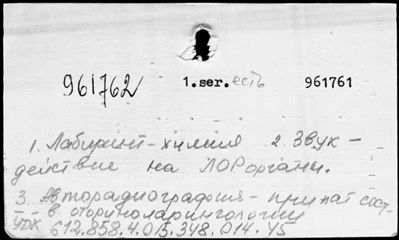 961762 1.ser. есть 961761
1. Лабиринт - химия 2. Звук -
действие на ЛОРорганы.
3. Авторадиография - при пат. сост.
- - в оториноларингологии
УДК 612.858.4.015.348.014.45